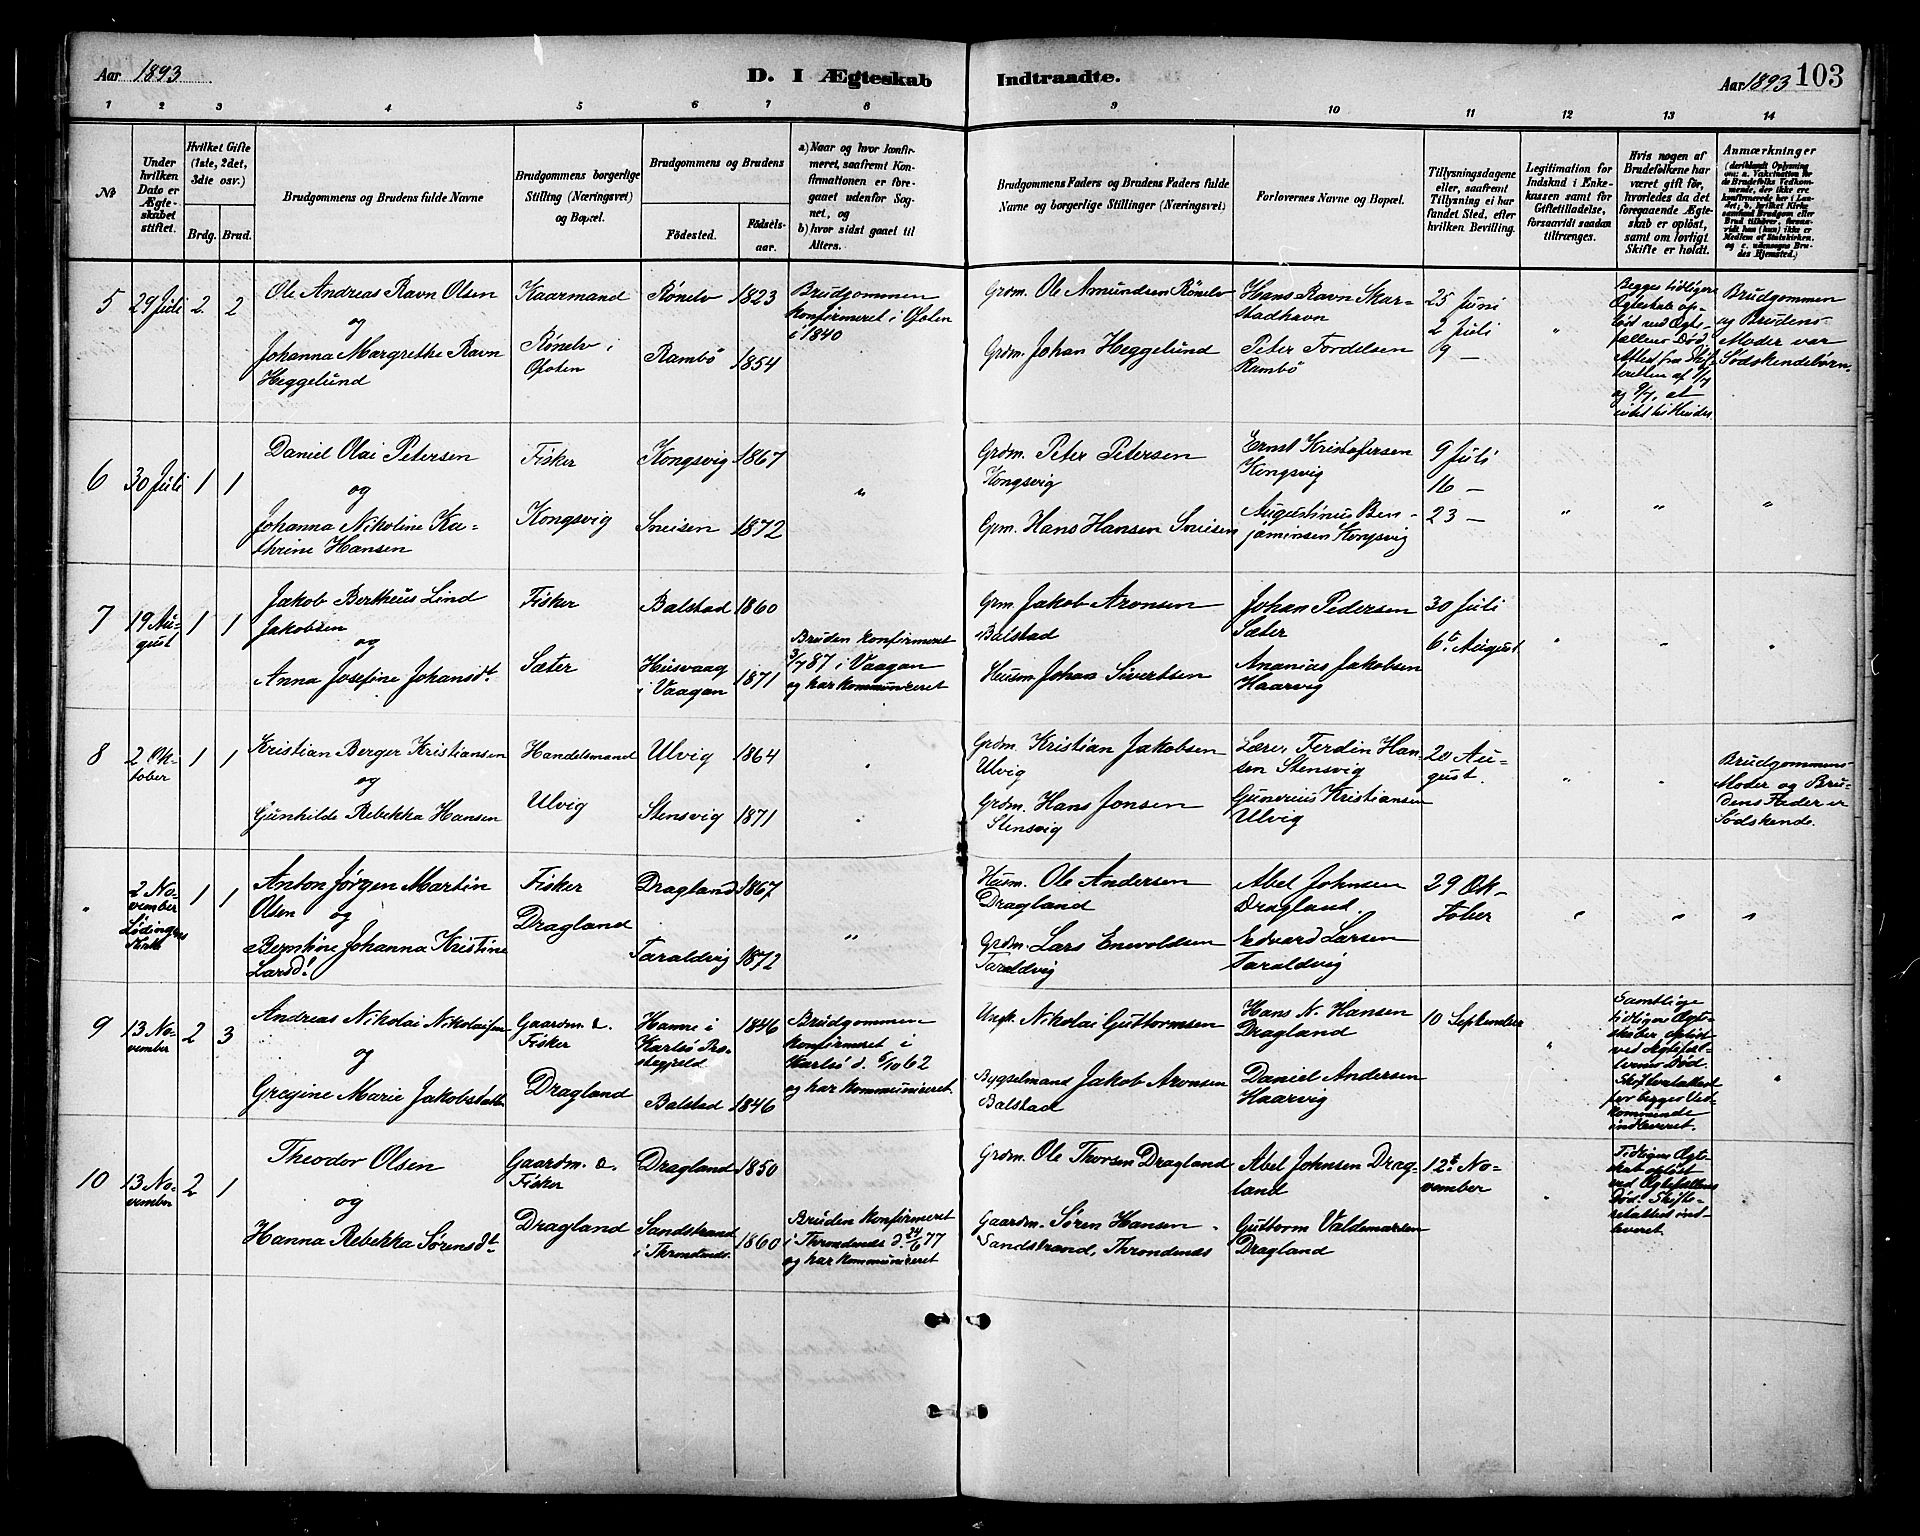 Aar 1893
D. I Ægteskab Indtraadte.
Aar 1893 103
1 2 3 4 5 6 7 8 9 10 11 12 13 14
№
Under hvilken Dato er Ægteskabet stiftet.
Hvilket Gifte (1ste, 2det, 3die osv.)
Brdg. Brud.
Brudgommens og Brudens fulde Navne
Brudgommens borgerlige Stilling (Næringsvei) og Bopæl.
Brudgommens og Brudens
Fødested. Fødselsaar.
a) Naar og hvor konfirmeret, saafremt Konfirmationen er foregaaet udenfor Sognet, og
b) hvor sidst gaaet til Alters.
Brudgommens Faders og Brudens Faders fulde Navne og borgerlige Stillinger (Næringsvei)
Forlovernes Navne og Bopæl.
Tillysningsdagene eller, saafremt Tillysning ei har fundet Sted, efter hvilken Bevilling.
Legitimation for Indskud i Enkekassen samt for Giftetilladelse, forsaavidt saadan tiltrænges.
Hvis nogen af Brudefolkene har været gift før, hvorledes da det foregaaende Ægteskab er opløst, samt om lovligt Skifte er holdt.
Anmærkninger
(deriblandt Oplysning om: a. Vaksination for de Brudefolks Vedkommende, der ikke ere konfirmerede her i Landet; b. hvilket Kirkesamfund Brudgom eller Brud tilhører, forsaavidt han (hun) ikke er Medlem af Statskirken, og c. udensogns Brudes Hjemsted.)
5
29 Juli
2. 2
Ole Andreas Ravn Olsen
og
Johanna Margrethe Ravn
Heggelund
Kaarmand
Rønelv i
Ofoten
Rønelv 1823
Rambø 1854
Brudgommen
konfirmeret i Ofoten
i 1840
Grdm. Ole Amundsen Rønelv
Grdm. Johan Heggelund
Hans Ravn Skarstadhavn
Peter Fordelsen
Rambø
25 Juni
2 Juli
9 —
"
Begges tidligere
Ægteskab opløst ved Ægtefællens Død
Attest fra Skifteretten af
Brudgommen
og Brudens
Moder var
Sødskendebørn
6
30 Juli
1 1
Daniel Olai Petersen
og
Johanna Nikoline Kathrine Hansen
Fisker
Kongsvig
Kongsvig 1867
Sneisen 1872
"
Grdm. Peter Petersen
Kongsvig
Grm. Hans Hansen Sneisen
Ernst Kristofersen
Kongsvig
Augustinus Benjaminsen Kongsvig
9 Juli
16 —
23 —
" " "
7
19 August
1 1
Jakob Bertheus Lind
Jakobsen
og
Anna Josefine Johansdt
Fisker
Sæter
Balstad 1860
Husvaag
i Vaagan 1871
Bruden konfirmeret
3/7 87 i Vaagan
og har kommuniceret
Grm Jakob Aronsen
Balstad
Husm. Johan Sivertsen
Johan Pedersen
Sæter
Ananias Jakobsen
Haarvig
30 Juli
6te August
" " "
8
2 Oktober
1 1
Kristian Berger Kristiansen
og
Gunhilde Rebekka Hansen
Handelsmand
Ulvig
Ulvig 1864
Stensvig 1871
"
"
Grdm. Kristian Jakobsen
Ulvig
Grdm. Hans Jonsen
Stensvig
Lærer Ferdin Hansen Stensvig
Gunerius Kristiansen
Ulvig
20 August.
" "
Brudgommens
Moder og Brudens Fader er
Sødskende.
"
2 November
Lødingens
Kirke
1 1
Anton Jørgen Martin
Olsen og
Berntine Johanna Kristine
Larsd!
Fisker
Dragland
Dragland 1867
Taraldvig 1872
"
Husm. Ole Andersen
Dragland
Grdm. Lars Enevoldsen
Taraldvig
Abel Johnsen
Dragland.
Edvard Larsen
Taraldvig
29 Oktober
" " "
9
13 November
2 3
Andreas Nikolai Nikolaisen
og
Gregine Marie Jakobsdatter
Gaardm. &
Fisker
Dragland
Hamre i
Karlsø Prestegjeld 1846
Balstad 1846
Brudgommen
konfirmeret i
Karlsø d. 5/10 62
og har kommuniceret.
Ungk. Nikolai Guttormsen
Bygselmand Jakob Aronsen
Balstad
Hans N. Hansen
Dragland
Daniel Andersen
Haarvig
10 September
"
Samtlige
tidligere Ægteskaber opløst
ved Ægtefællernes Død.
Skifteretattest
for begges Vedkommende
indleveret.
"
10
13 November
2 1
Theodor Olsen
og
Hanna Rebekka Sørensdt
Gaardm. &
Fisker
Dragland
Dragland 1850
Sandstrand
i Throndenes. 1860
Bruden konfirmeret
i Throndenes d. 24/6 77
og har kommuniceret
Grdm. Ole Thorsen Dragland
Gaardm. Søren Hansen
Sandstrand, Throndenes
Abel Johnsen Dragland
Guttorm Valdemarsen
Dragland
12te November
"
Tidligere Ægteskab opløst
ved Ægtefællens
Død. Skifteretattest indleveret.